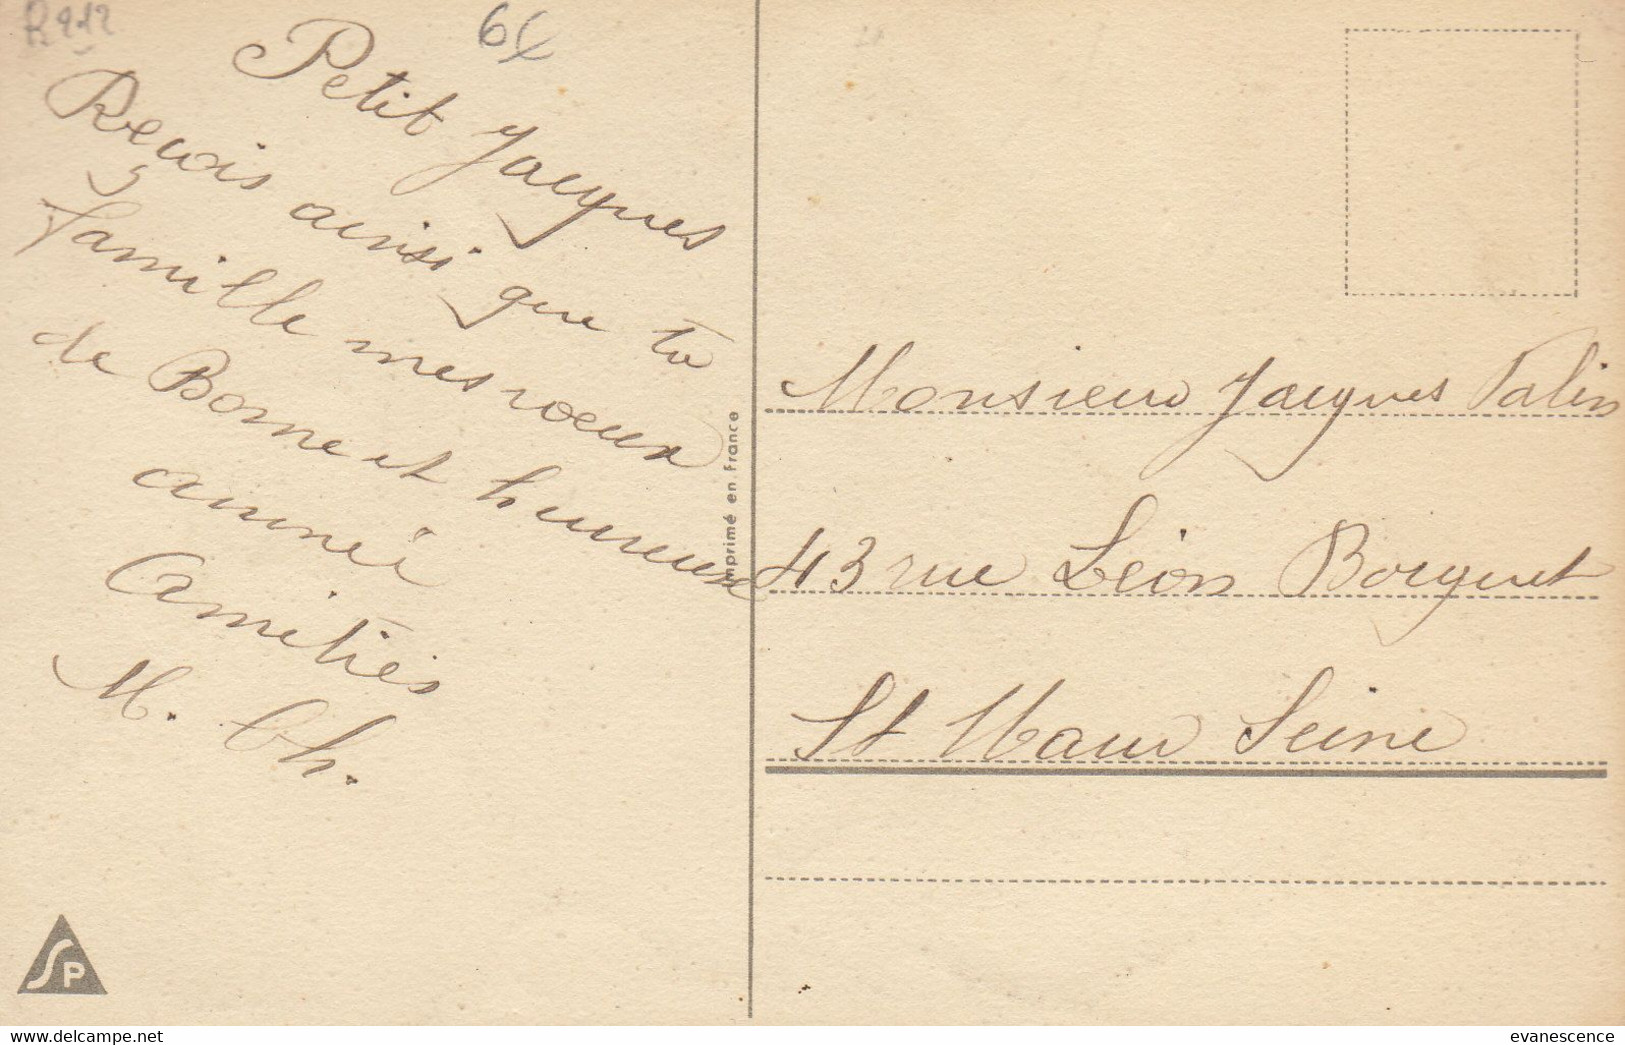 R212
64
Petit Jacques
Reçois ainsi que ta
famille mes voeux
de Bonne et hureuse
année
Amitiés
M. Th.
Imprimé en France
Monsieur Jacques Valin
43 rue Léon Bocquet
St Maur Seine
SP
delcampe.net
evanescence